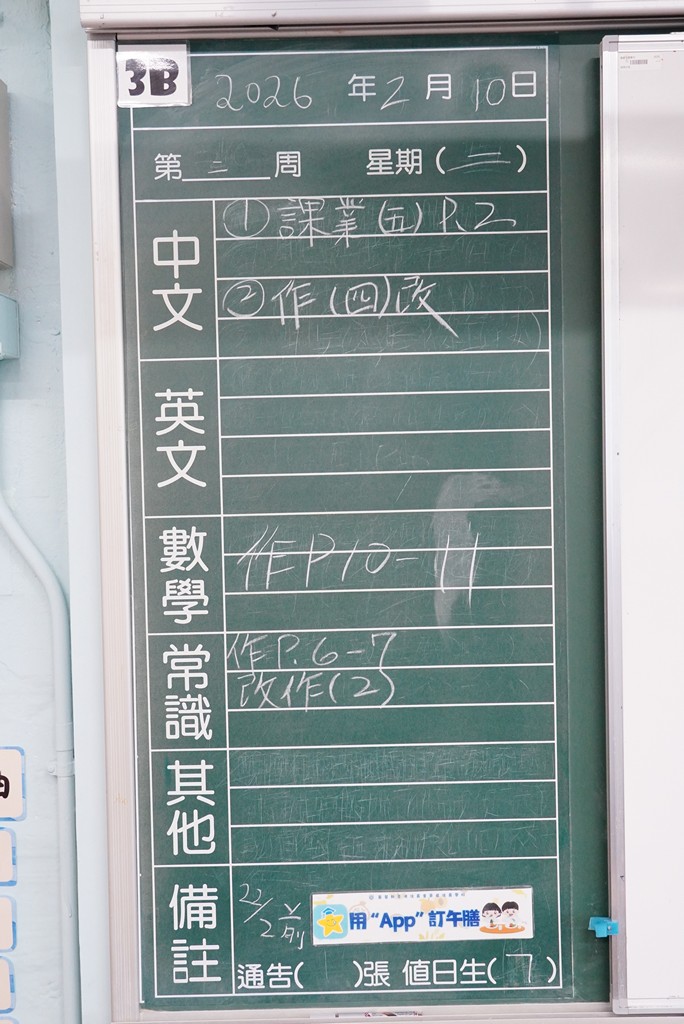 3B
2026 年 2 月 10 日
第 二 周 星期 (二)
中文
① 課業 (五) P.2
② 作 (四) 改
英文
數學
作 P10-11
常識
作 P.6-7
改作(2)
其他
備註
22/2 前
用 “App” 訂午膳
通告( )張 值日生(7)